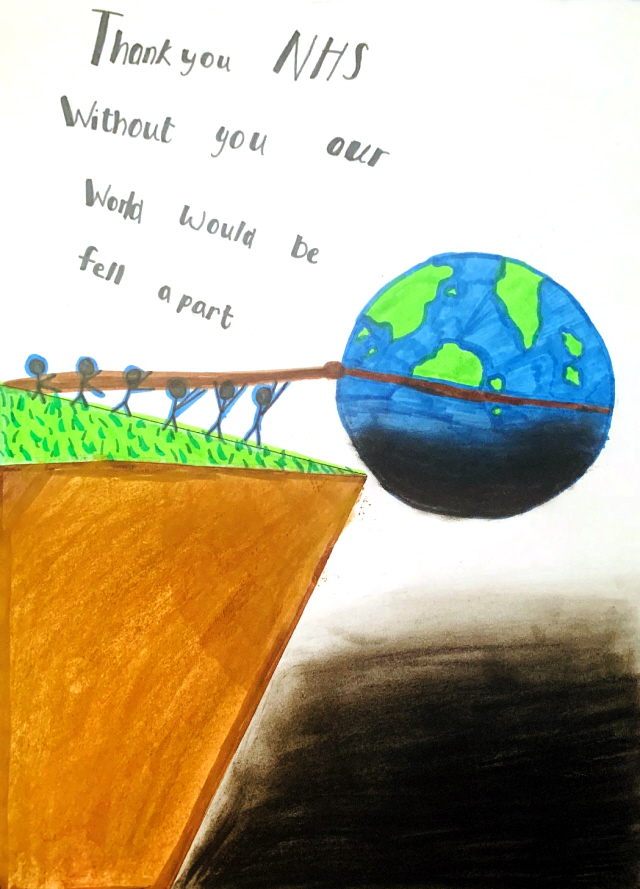 Thank you NHS
Without you our
World would be
fell apart